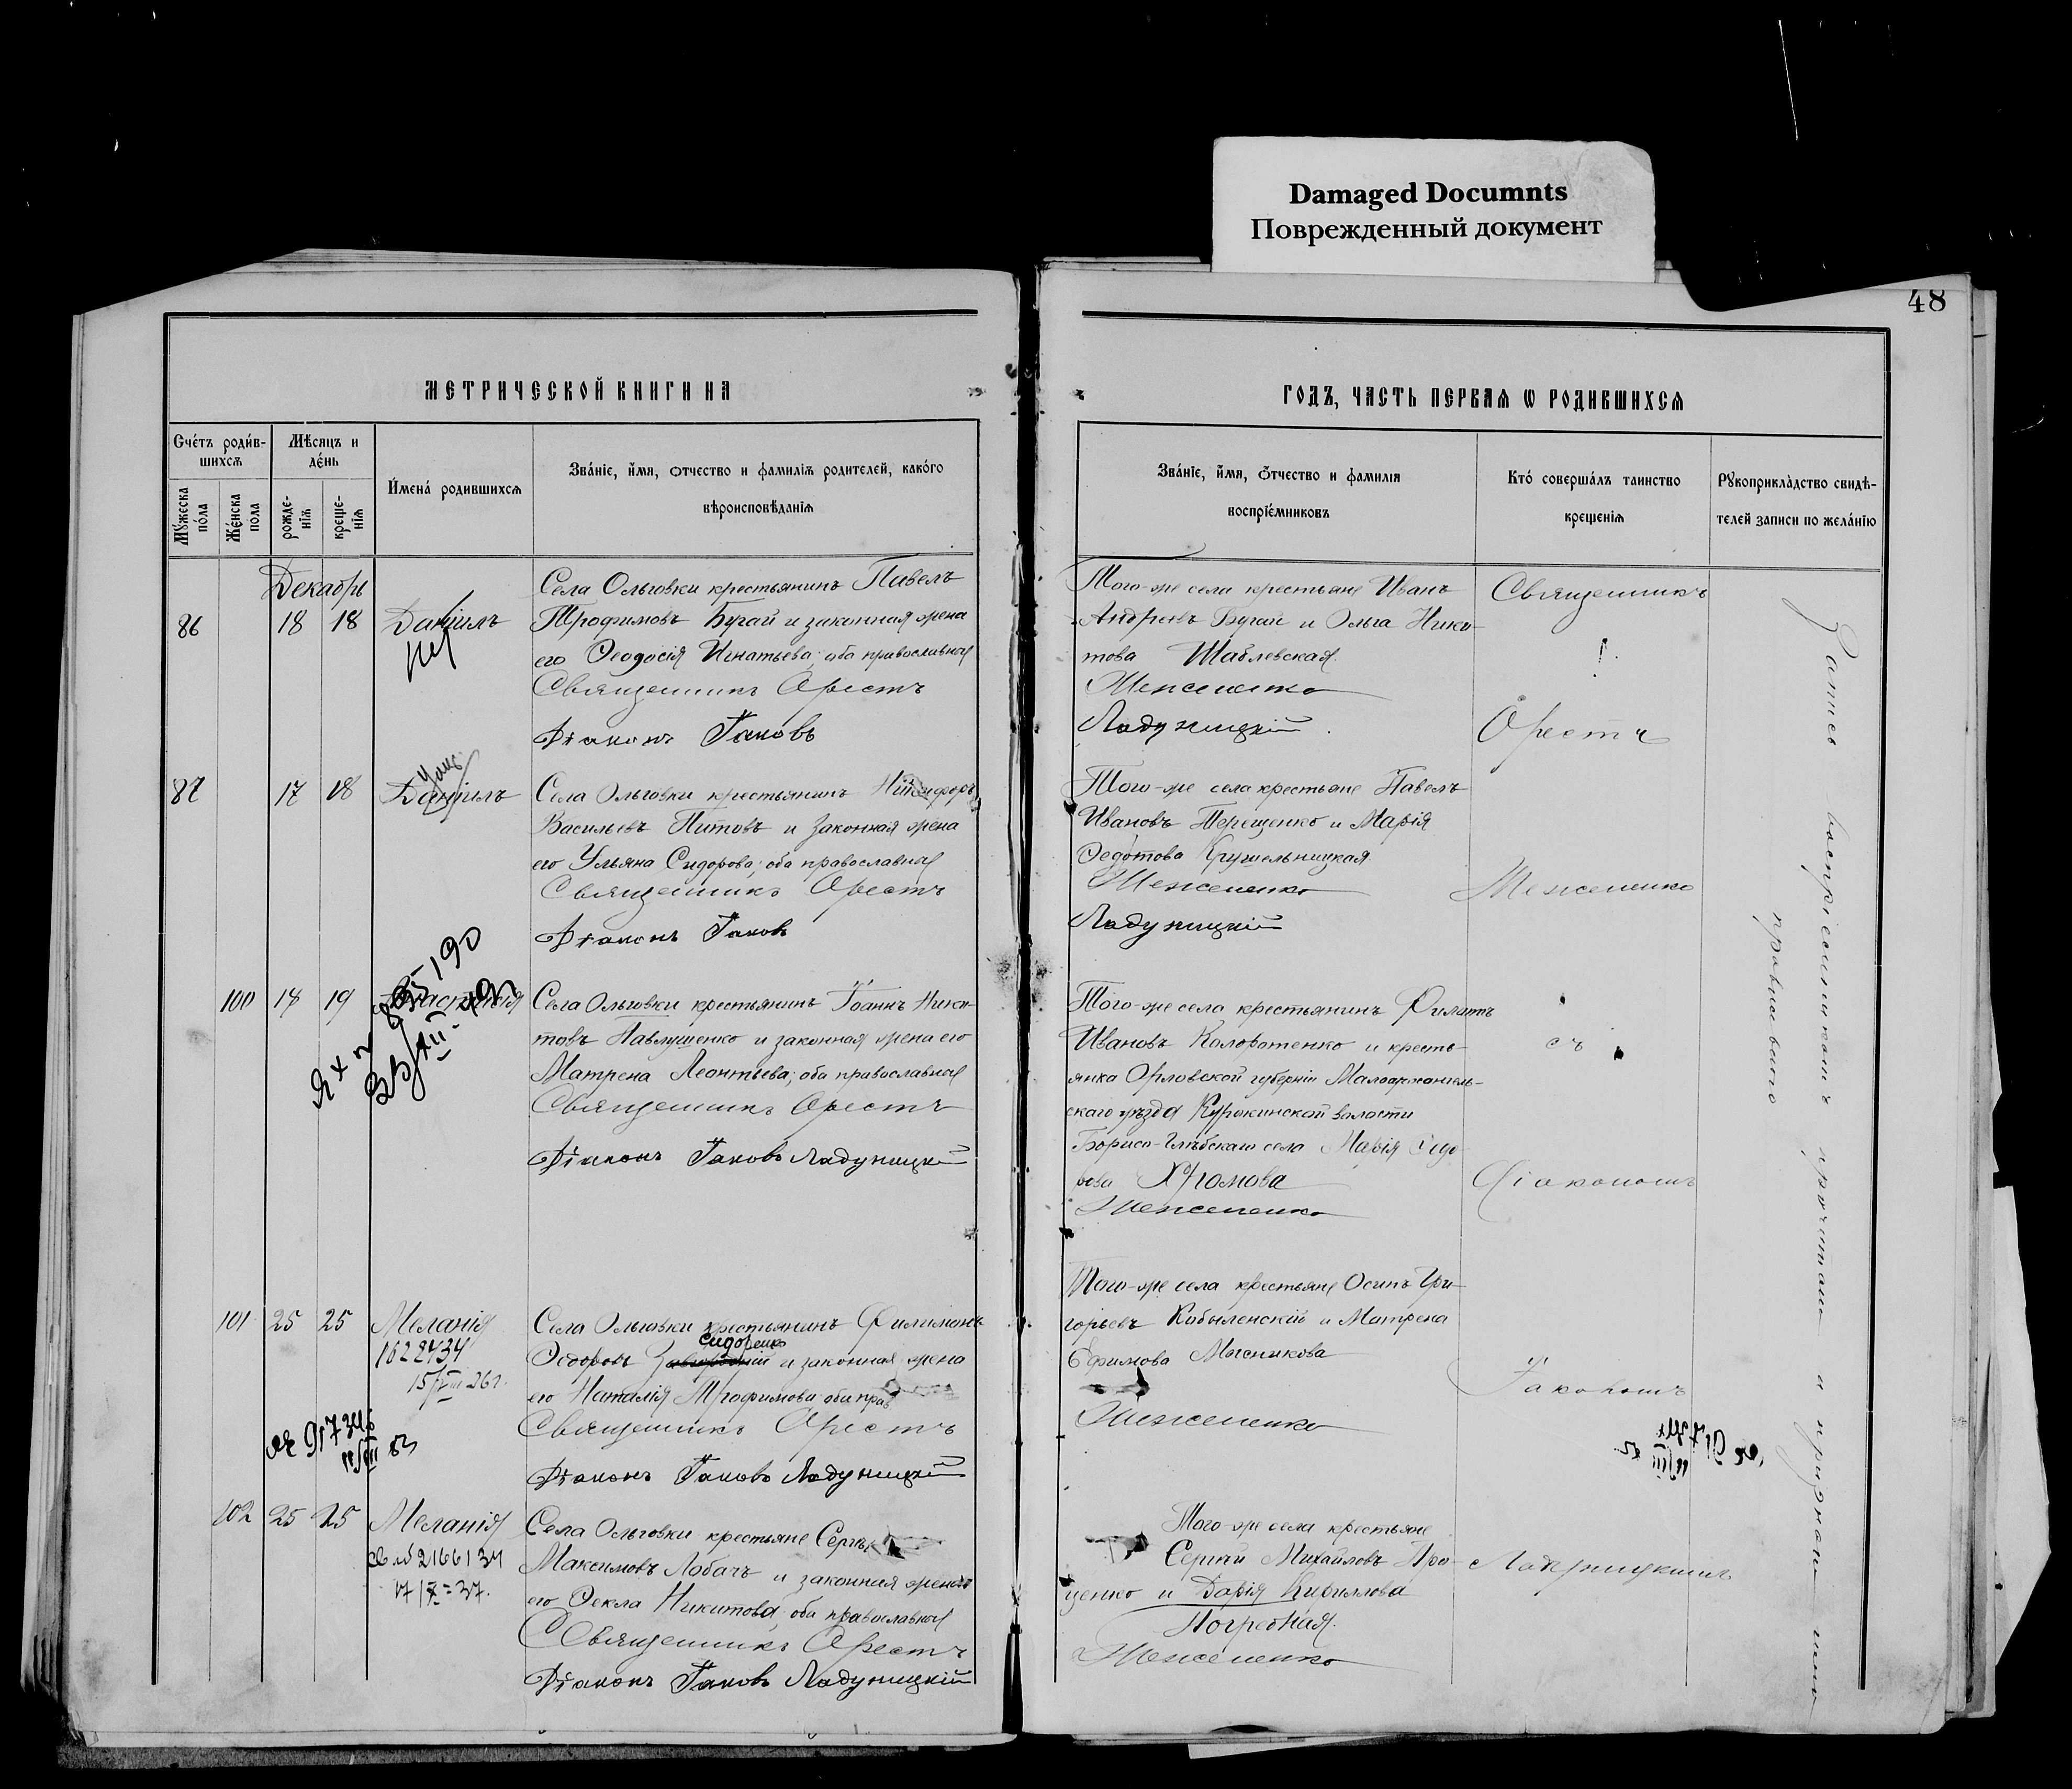 Damaged Documnts
Поврежденный документ
48
МЕТРИЧЕСКОЙ КНИГИ НА
ГОДЪ, ЧАСТЬ ПЕРВАЯ Ѡ РОДИВШИХСЯ
Счетъ родив-
шихся
Мѣсяцъ и
день
Мужеска
пола
Женска
пола
рожде-
нія
креще-
нія
Имена родившихся
Званіе, имя, отчество и фамилія родителей, какого
вѣроисповѣданія
Званіе, имя, отчество и фамилія
воспріемниковъ
Кто совершалъ таинство
крещенія
Рукоприкладство свидѣ-
телей записи по желанію
Декабрь
86 18 18 Даніилъ
Села Ольговки крестьянинъ Павелъ
Трофимовъ Бугай и законная жена
его Ѳеодосія Игнатьева; оба православныя
Священникъ Орестъ
Діаконъ Іаковъ
Того-же села крестьяне Иванъ
Андреевъ Бугай и Ольга Ники-
това Шаблевская.
Менжеленко
Ладужицкій
Священникъ
Орестъ
87 17 18 Даніилъ
Села Ольговки крестьянинъ Никифоръ
Васильевъ Титовъ и законная жена
его Ульяна Сидорова; оба православныя
Священникъ Орестъ
Діаконъ Іаковъ
Того-же села крестьяне Павелъ
Ивановъ Терещенко и Марія
Ѳедотова Кушельницкая
Менжеленко
Ладужицкій
Менжеленко
100 18 19
Села Ольговки крестьянинъ Іоаннъ Ники-
товъ Павлущенко и законная жена его
Матрена Леонтьева; оба православныя
Священникъ Орестъ
Діаконъ Іаковъ Ладужицкій
Того-же села крестьянинъ Филатъ
Ивановъ Коломотенко и кресть-
янка Орловской губерніи Малоархангель-
скаго уѣзда Куракинской волости
Борисо-Глѣбскаго села Марія Ѳедо
рова Хромова
Менжеленко
съ
Діакономъ
101 25 25 Меланія
1622434
15/VIII 26г.
Села Ольговки крестьянинъ Филимонъ
Сидоренко
Ѳедоровъ и законная жена
его Наталія Трофимова оба прав
Священникъ Орестъ
Діаконъ Іаковъ Ладужицкій
Того-же села крестьяне Осипъ Гри-
горьевъ Кобыленскій и Матрена
Ефимова Мясникова
Менжеленко
Іаковомъ
102 25 25 Меланія
св № 2166134
17/X=37.
Села Ольговки крестьяне Сергѣй
Максимовъ Лобачъ и законная жена
его Ѳекла Никитова; оба православныя
Священникъ Орестъ
Діаконъ Іаковъ Ладужицкій
Того-же села крестьяне
Сергій Михайловъ Про-
ценко и Дарія Кириллова
Погребная.
Менжеленко
Ладужицкимъ
Запись воспріемникамъ прочитана и признана ими
правильною